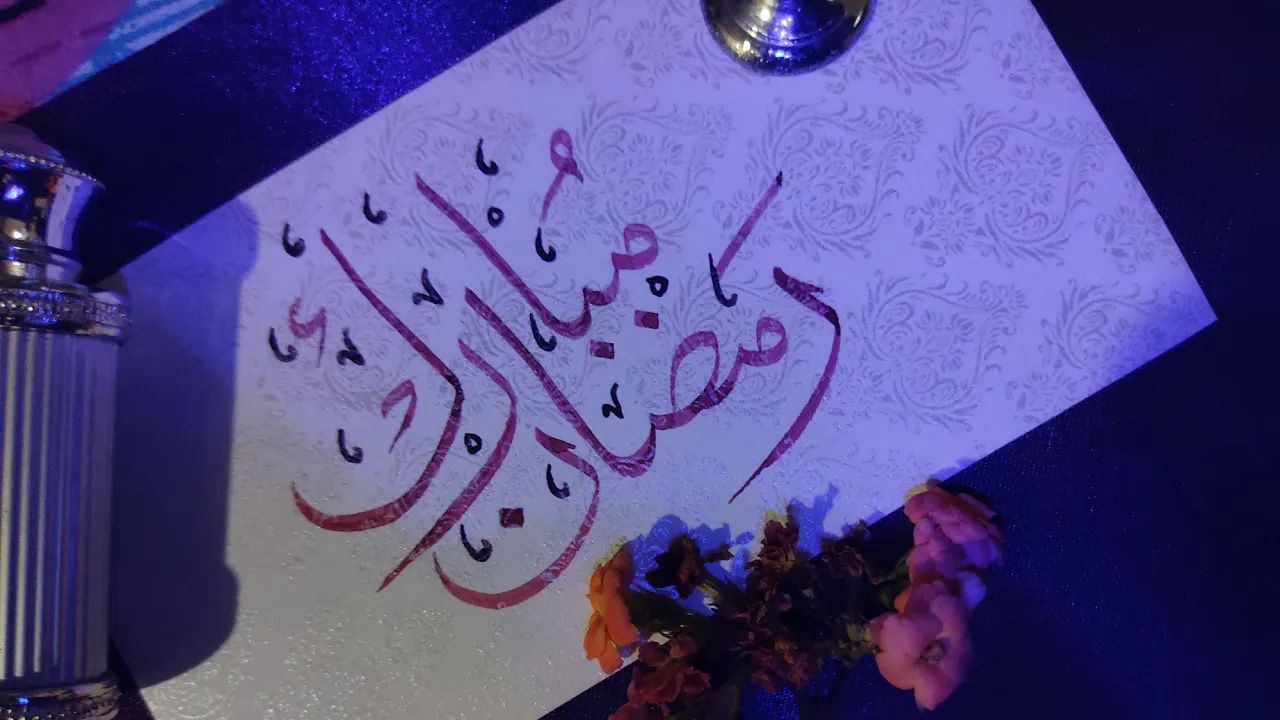 رمضان
مُبارك